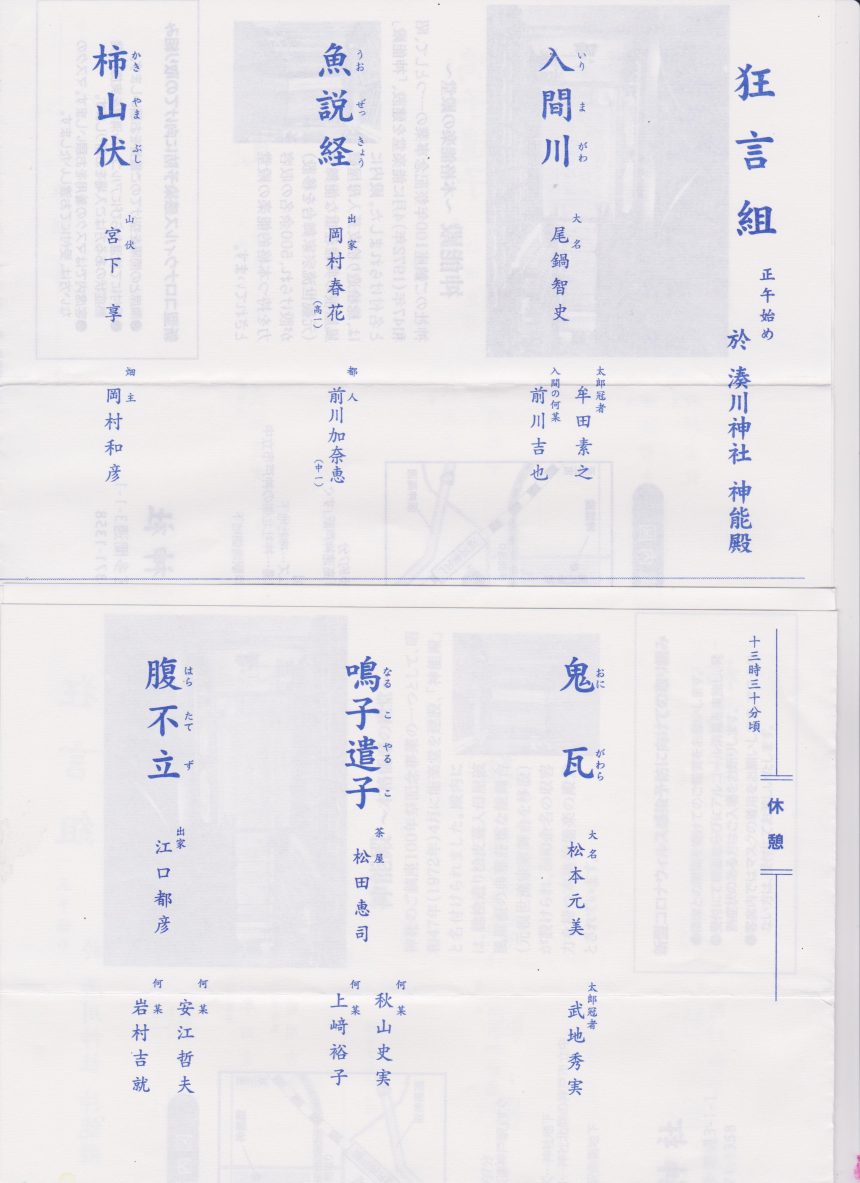 狂言組
正午始め
於 湊川神社 神能殿
入間川
いり ま がわ
大名
尾鍋智史
太郎冠者
牟田素之
入間の何某
前川吉也
魚説経
うお ぜっ きょう
出家
岡村春花
(高一)
都人
前川加奈恵
(中一)
柿山伏
かき やま ぶし
山伏
宮下 享
畑主
岡村和彦
十三時三十分頃
休憩
鬼瓦
おに がわら
大名
松本元美
太郎冠者
武地秀実
鳴子遣子
なる こ やる こ
茶屋
松田恵司
何某
秋山史実
何某
上﨑裕子
腹不立
はら たて ず
出家
江口都彦
何某
安江哲夫
何某
岩村吉就